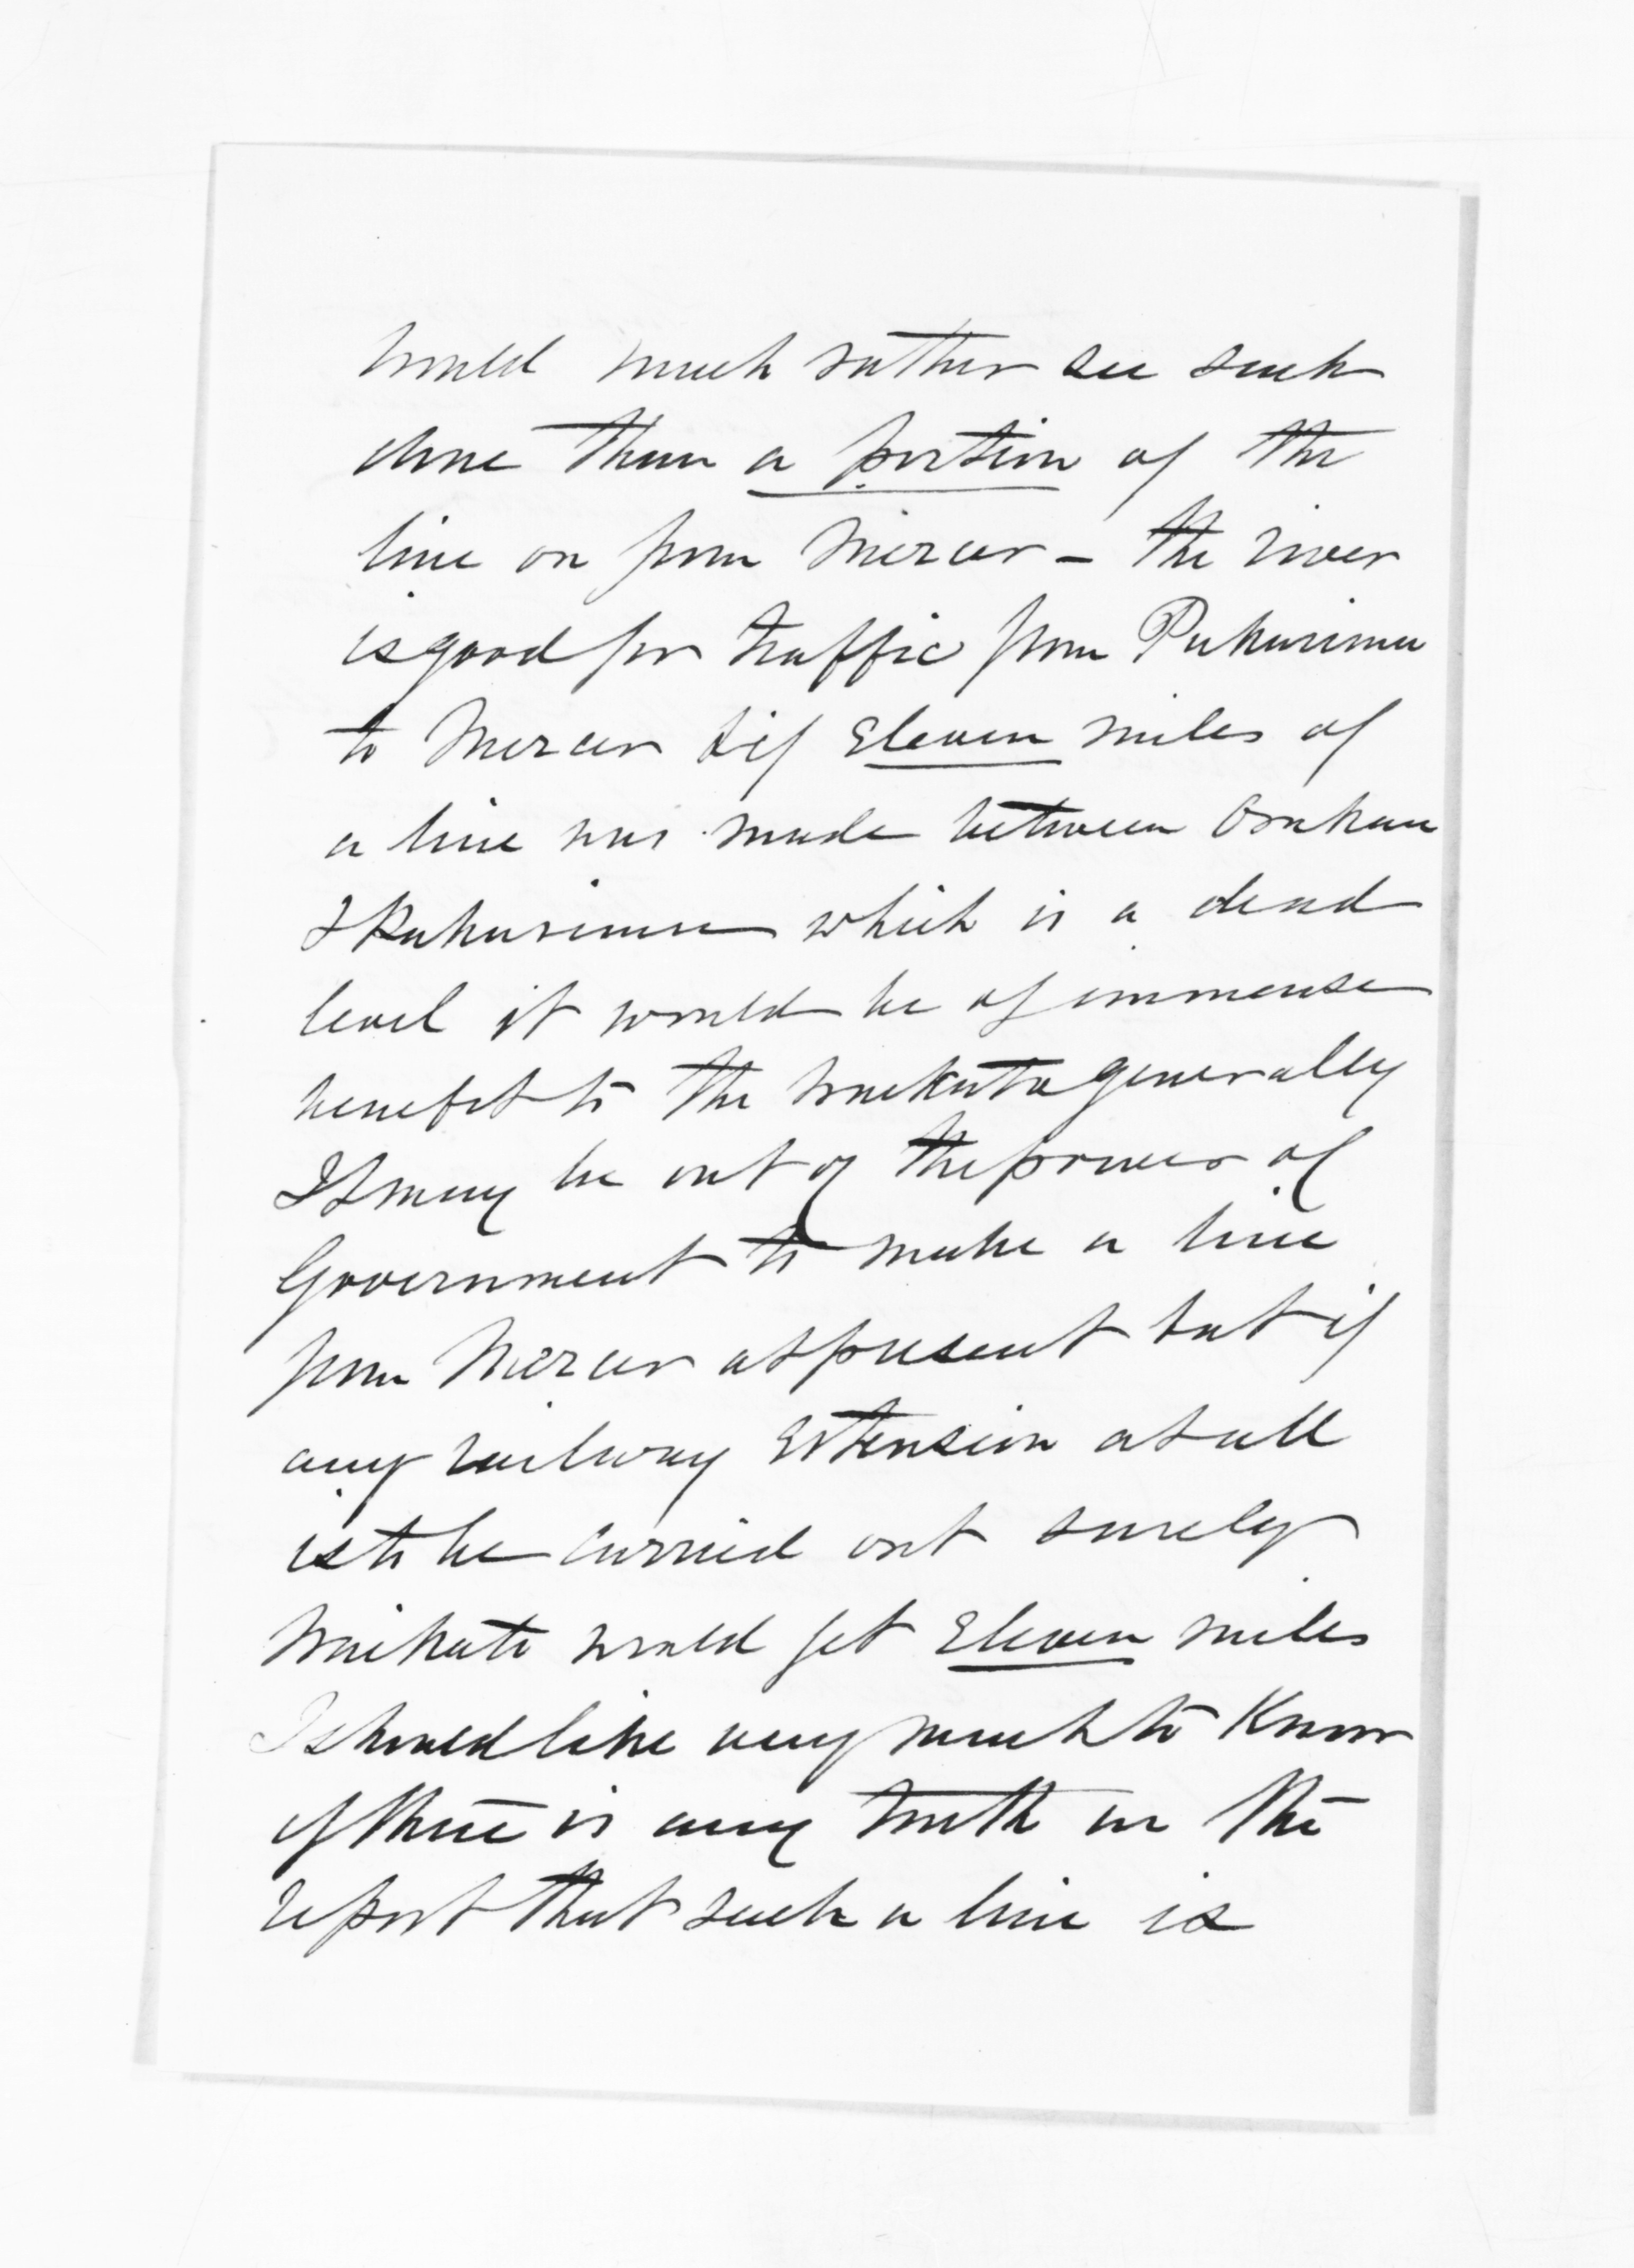 would much rather see such
done than a portion of the
line on from Mercer - the river
is good for traffic from Pukurimu
to Mercer & if Eleven miles of
a line was made between Orakau
& Pukurimu which is a dead
level it would be of immense
benefit to the Waikato generally
It may be out of the power of
Government to make a line
from Mercer at present but if
any railway Extension at all
is to be carried out surely
Waikato would get Eleven miles
I should like very much to Know
if there is any truth in the
report that such a line is